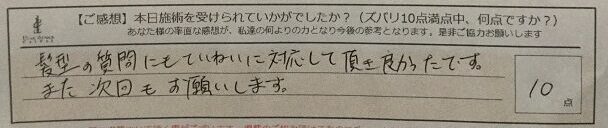 【ご感想】本日施術を受けられていかがでしたか？（ズバリ10点満点中、何点ですか？）
あなた様の率直な感想が、私達の何よりの力となり今後の参考となります。是非ご協力お願いします
髪型の質問にもていねいに対応して頂き良かったです。
また次回もお願いします。
10
点